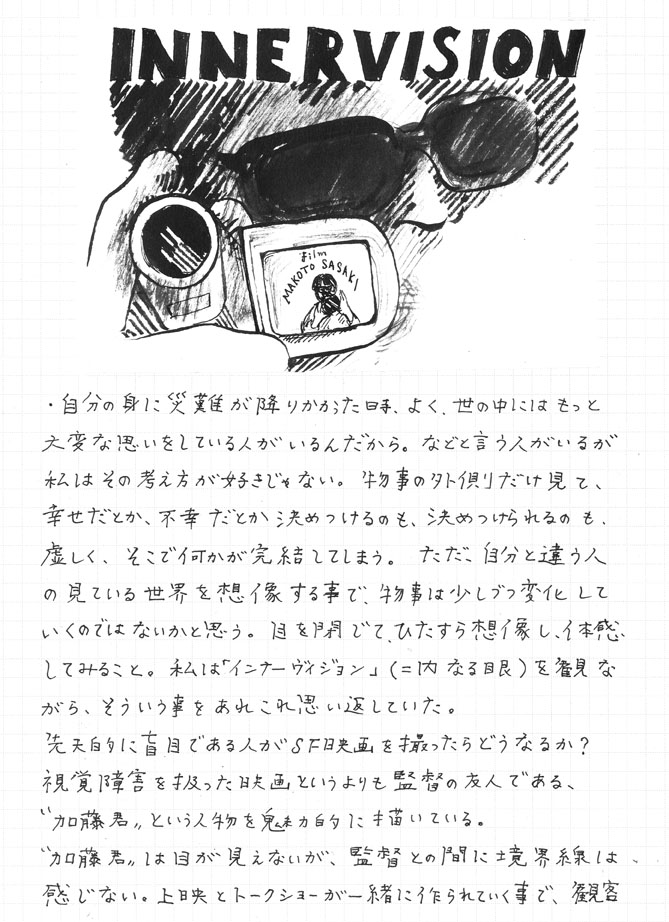 INNERVISION
film
MAKOTO SASAKI
・自分の身に災難が降りかかった時、よく、世の中にはもっと
大変な思いをしている人がいるんだから。などと言う人がいるが
私はその考え方が好きじゃない。物事の外側だけ見て、
幸せだとか、不幸だとか決めつけるのも、決めつけられるのも、
虚しく、そこで何かが完結してしまう。ただ、自分と違う人
の見ている世界を想像する事で、物事は少しづつ変化して
いくのではないかと思う。目を閉じて、ひたすら想像し、体感
してみること。私は「インナーヴィジョン」(=内なる眼)を観な
がら、そういう事をあれこれ思い返していた。
先天的に盲目である人がSF映画を撮ったらどうなるか?
視覚障害を扱った映画というよりも監督の友人である、
“加藤君〟という人物を魅力的に描いている。
“加藤君〟は目が見えないが、監督との間に境界線は
感じない。上映とトークショーが一緒に作られていく事で、観客